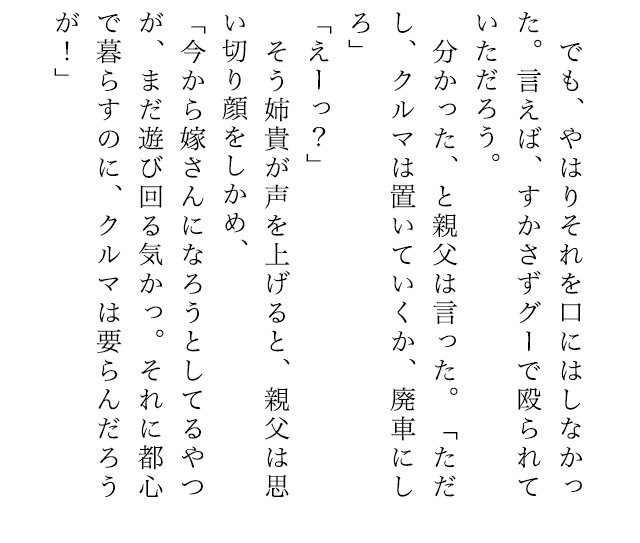 でも、やはりそれを口にはしなかっ
た。言えば、すかさずグーで殴られて
いただろう。
　分かった、と親父は言った。「ただ
し、クルマは置いていくか、廃車にし
ろ」
「えーっ？」
　そう姉貴が声を上げると、親父は思
い切り顔をしかめ、
「今から嫁さんになろうとしてるやつ
が、まだ遊び回る気かっ。それに都心
で暮らすのに、クルマは要らんだろう
が！」